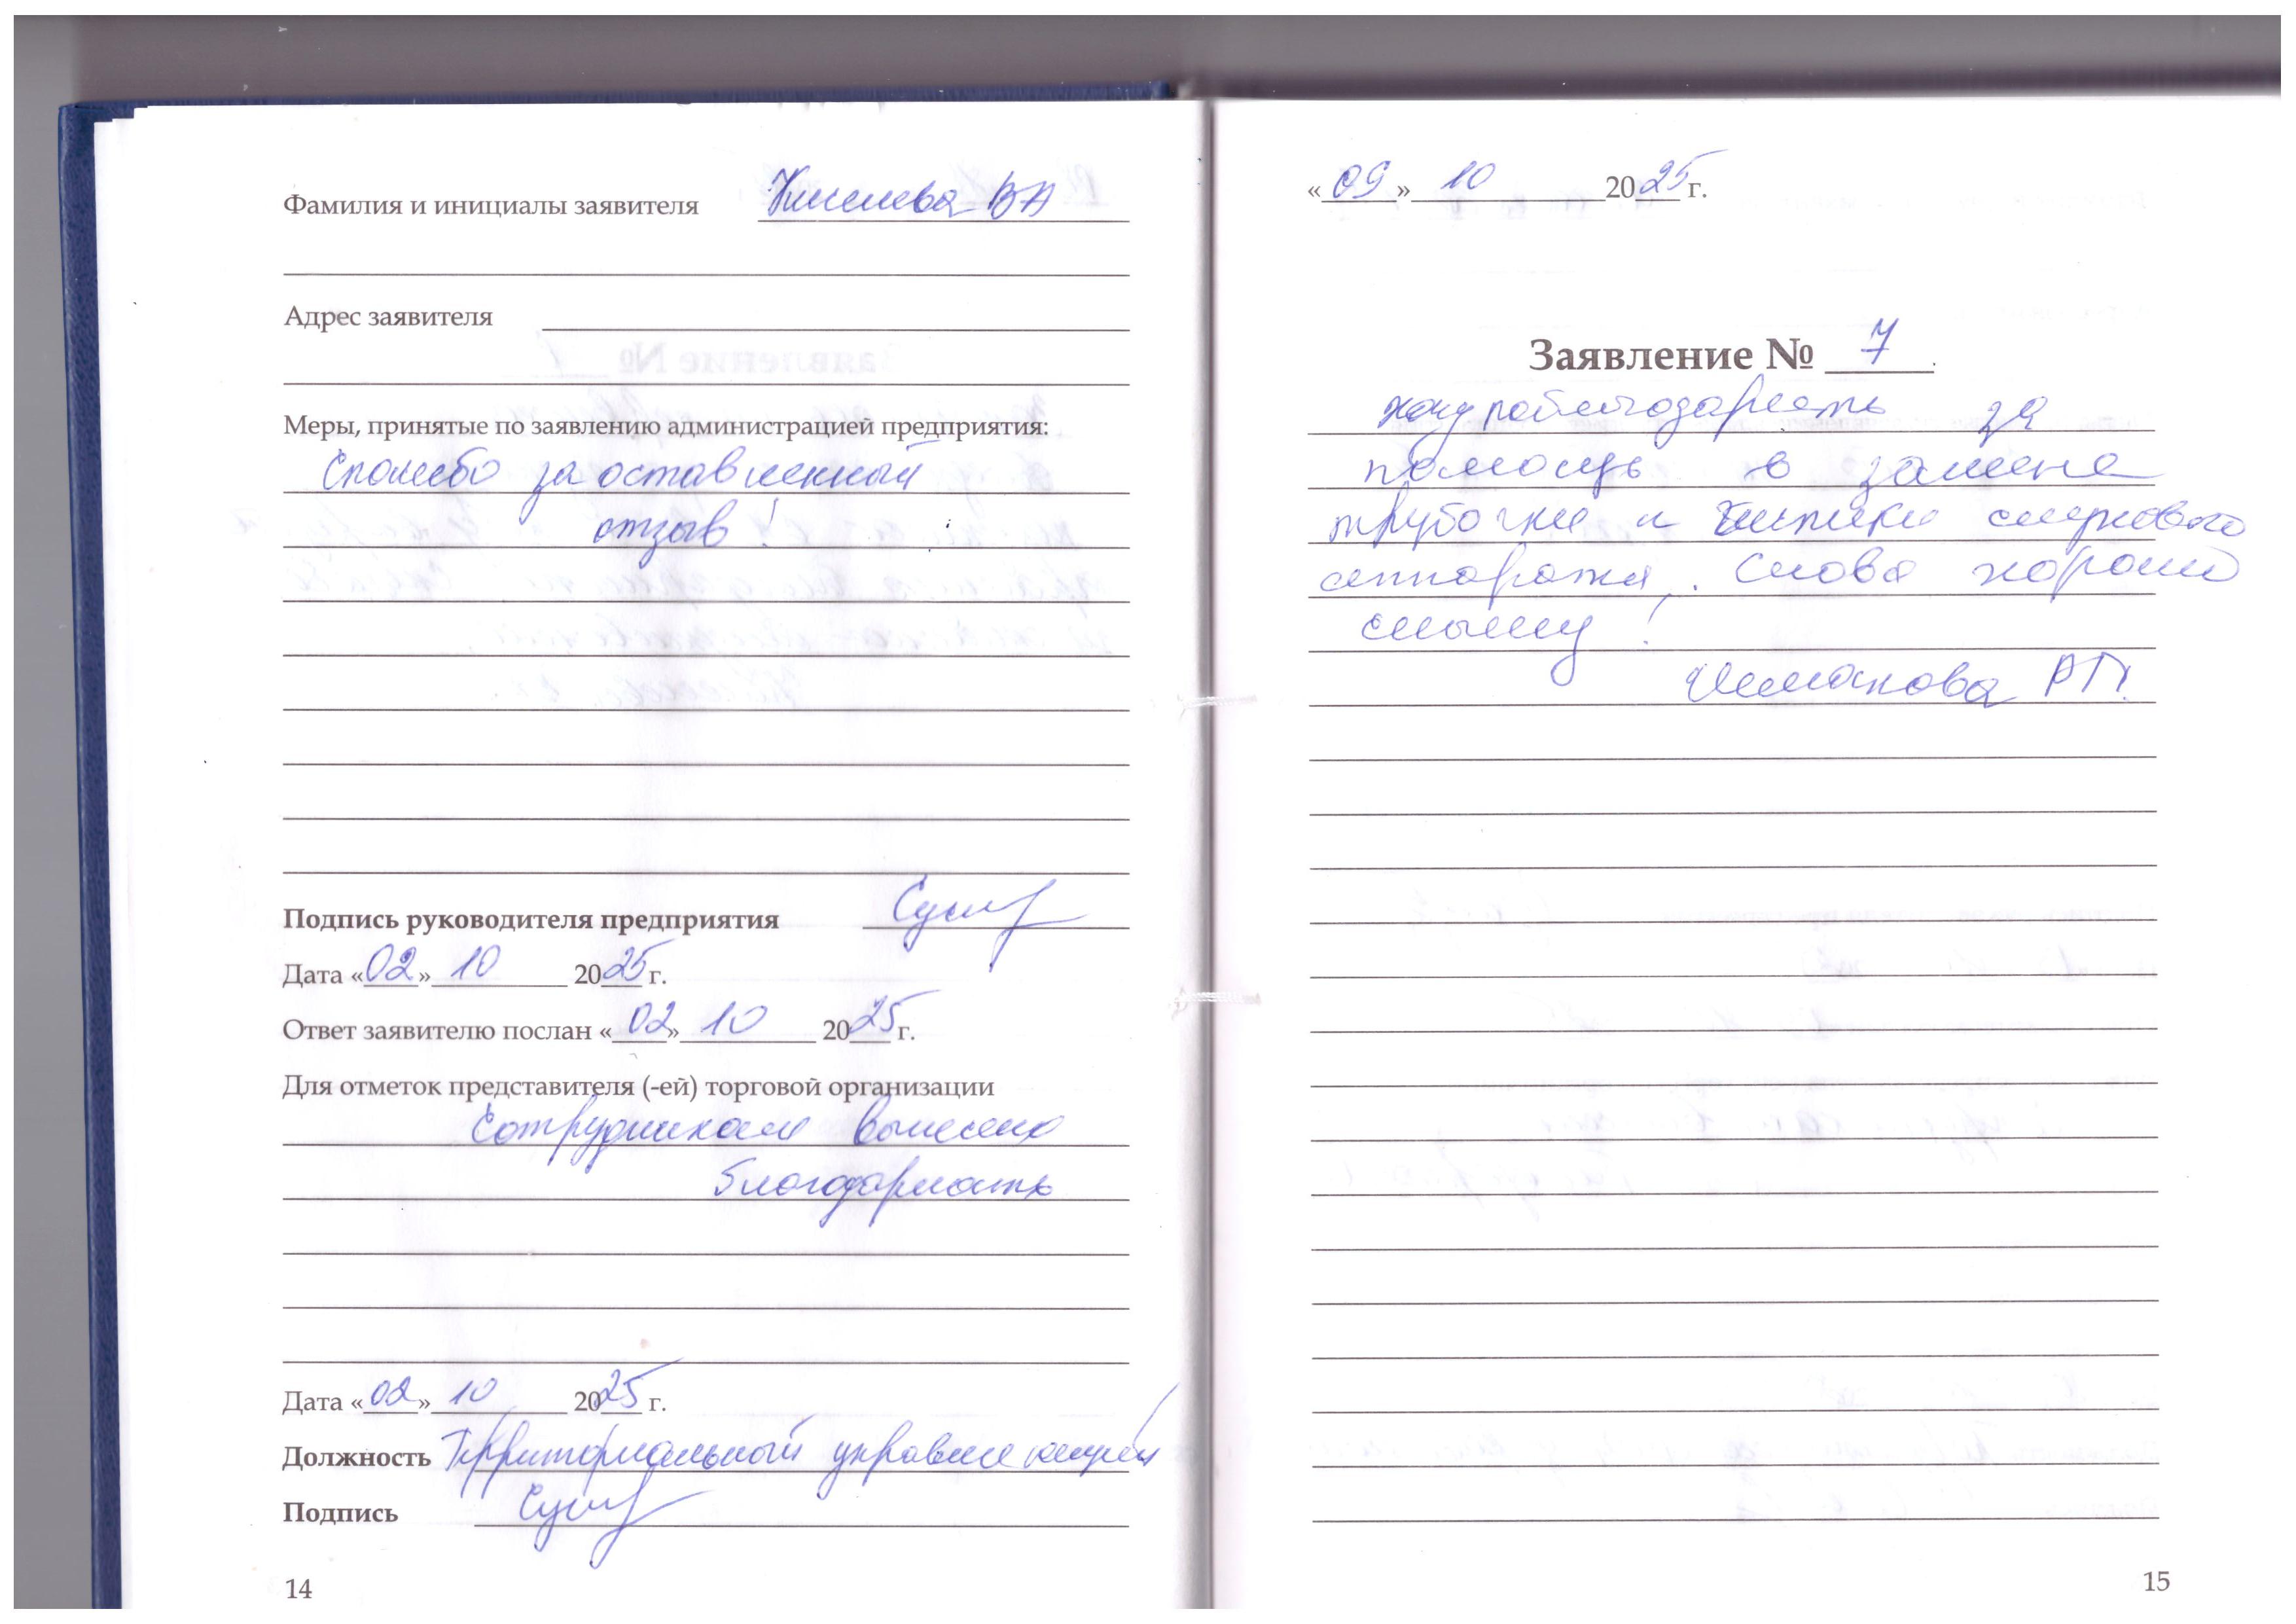 Фамилия и инициалы заявителя Киселева ВА
Адрес заявителя
Меры, принятые по заявлению администрацией предприятия:
Спасибо за оставленный
отзыв!
Подпись руководителя предприятия
Дата «02» 10 2025 г.
Ответ заявителю послан «02» 10 2025 г.
Для отметок представителя (-ей) торговой организации
Сотрудникам вынесена
благодарность
Дата «02» 10 2025 г.
Должность Территориальный управляющий
Подпись
14
«09» 10 2025 г.
Заявление № 7
за
помощь в замене
трубочки и чистки слухового
аппарата. Снова хорошо
слышу!
РП.
15